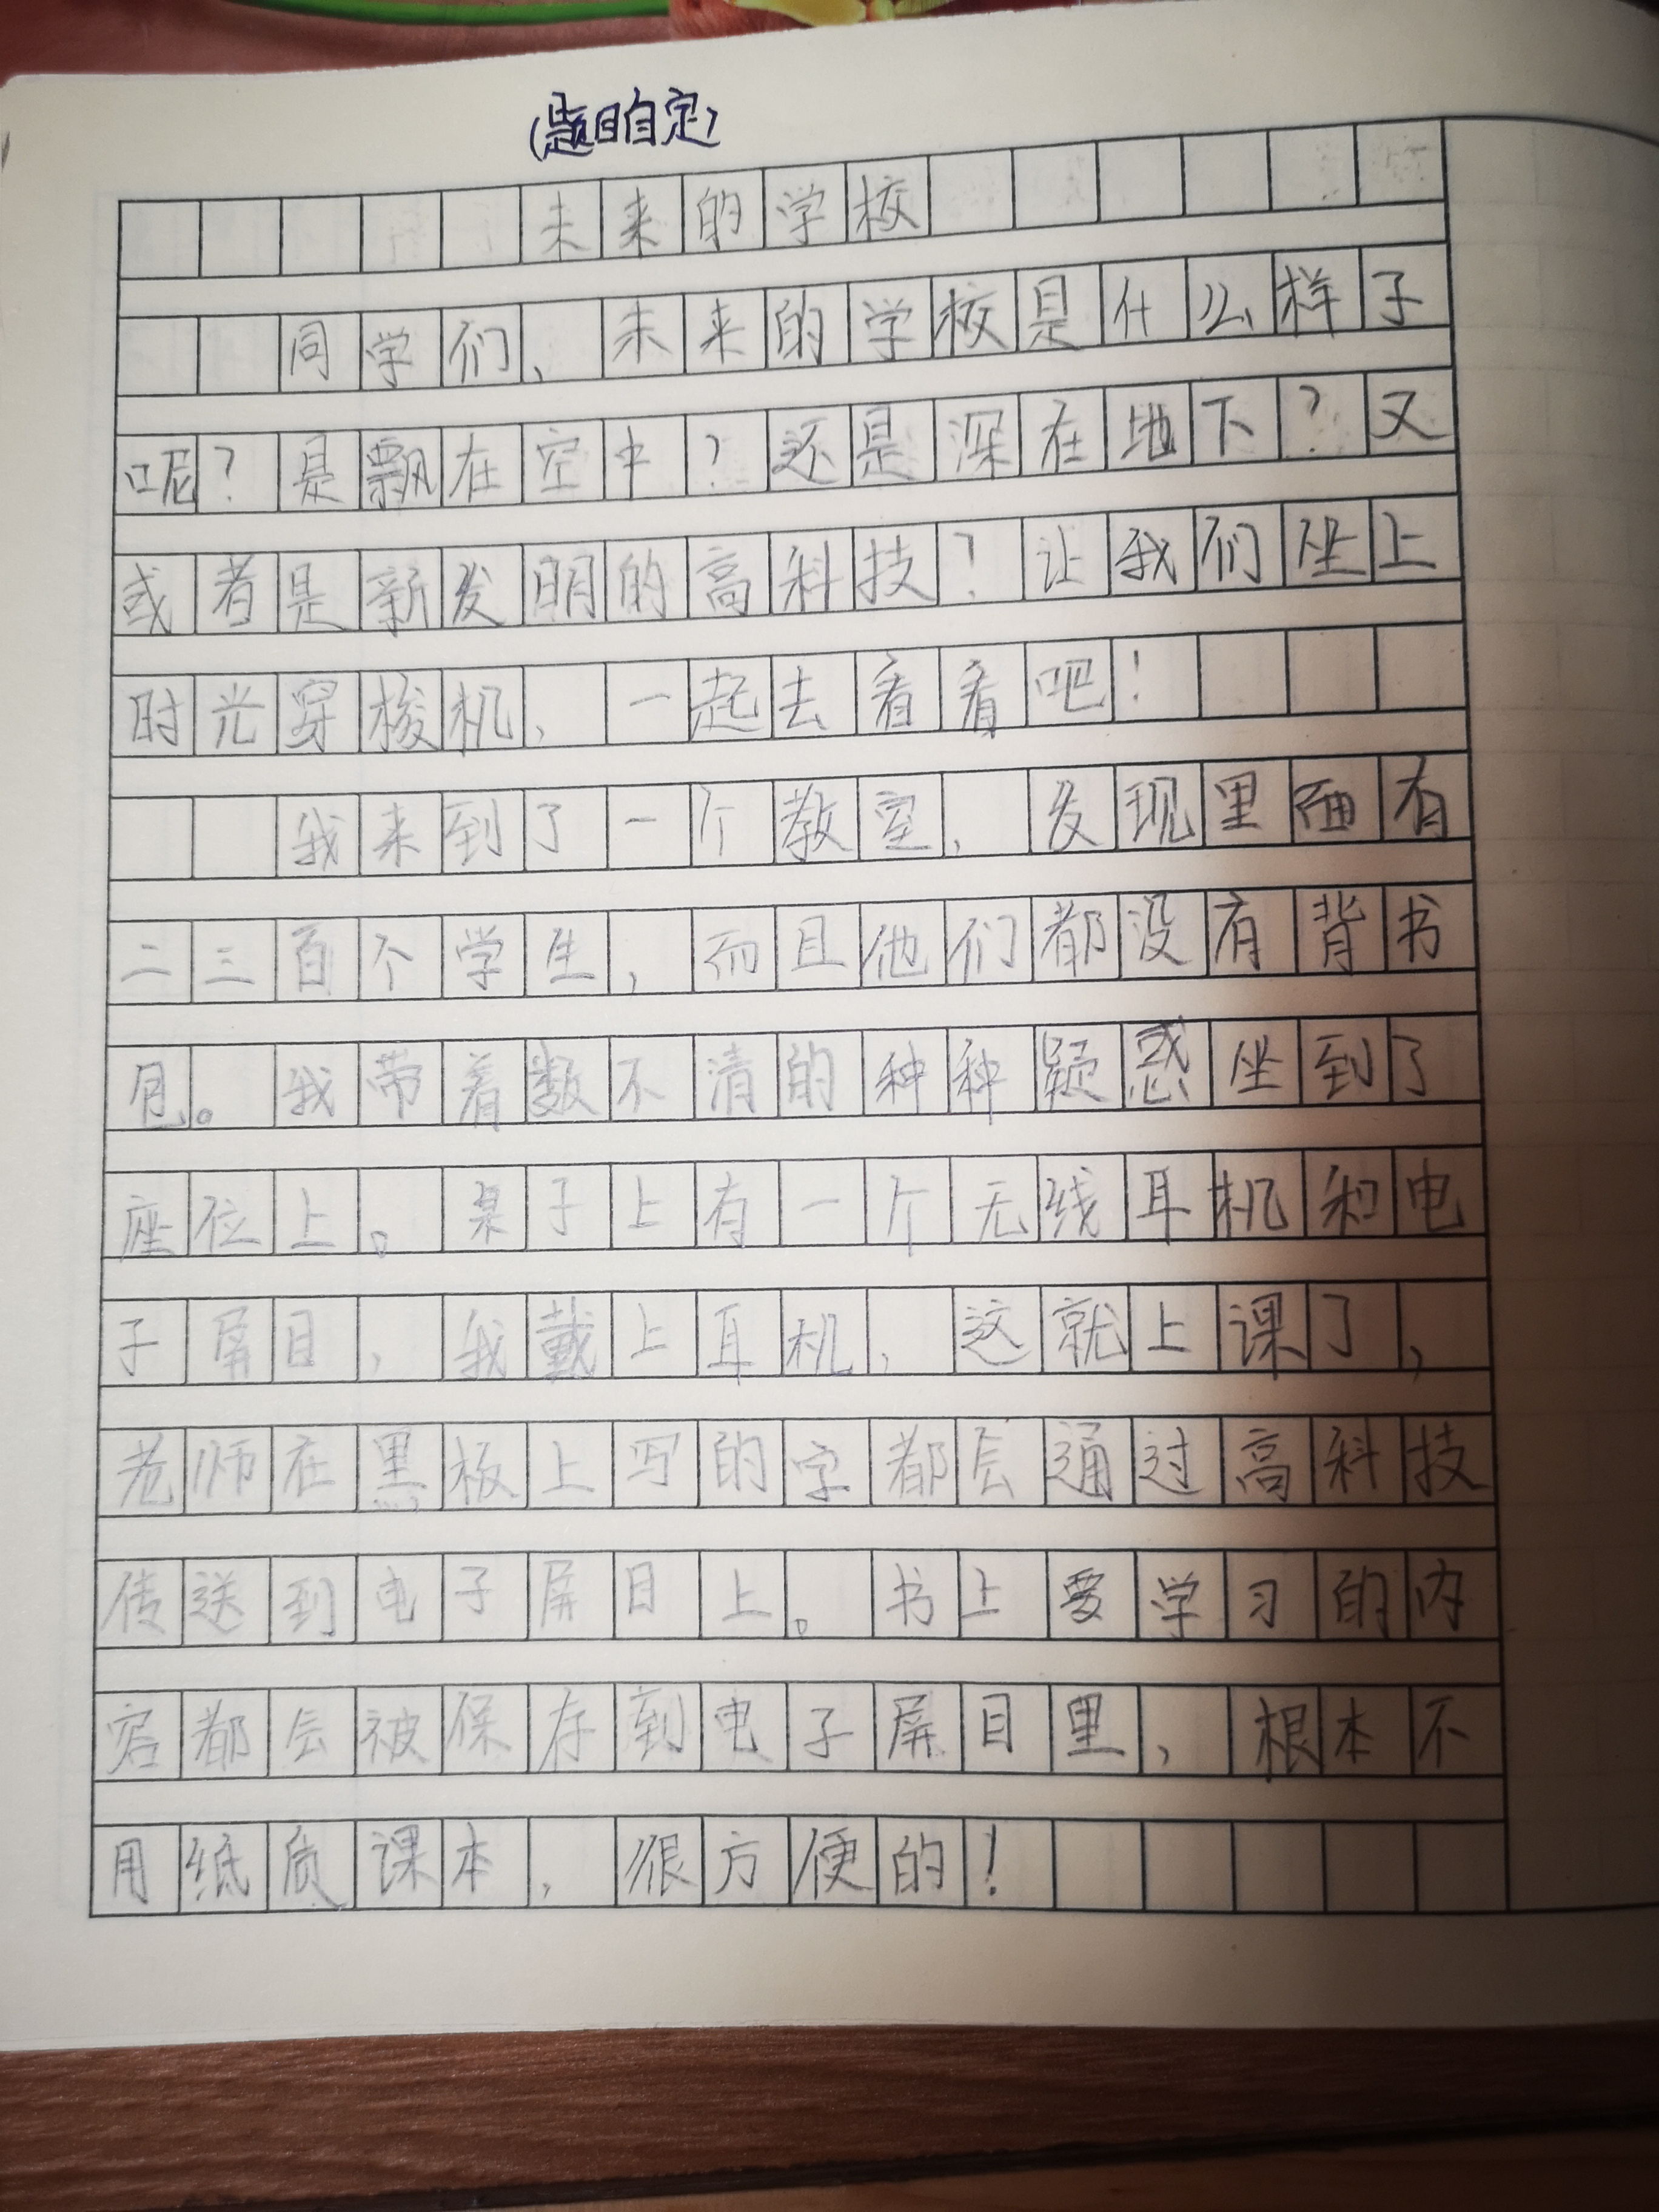 (题目自定)
未来的学校
同学们，未来的学校是什么样子
呢？是飘在空中？还是深在地下？又
或者是新发明的高科技？让我们坐上
时光穿梭机，一起去看看吧！
我来到了一个教室，发现里面有
二三百个学生，而且他们都没有背书
包。我带着数不清的种种疑惑坐到了
座位上。桌子上有一个无线耳机和电
子屏目，我戴上耳机，这就上课了，
老师在黑板上写的字都会通过高科技
传送到电子屏目上。书上要学习的内
容都会被保存到电子屏目里，根本不
用纸质课本，很方便的！